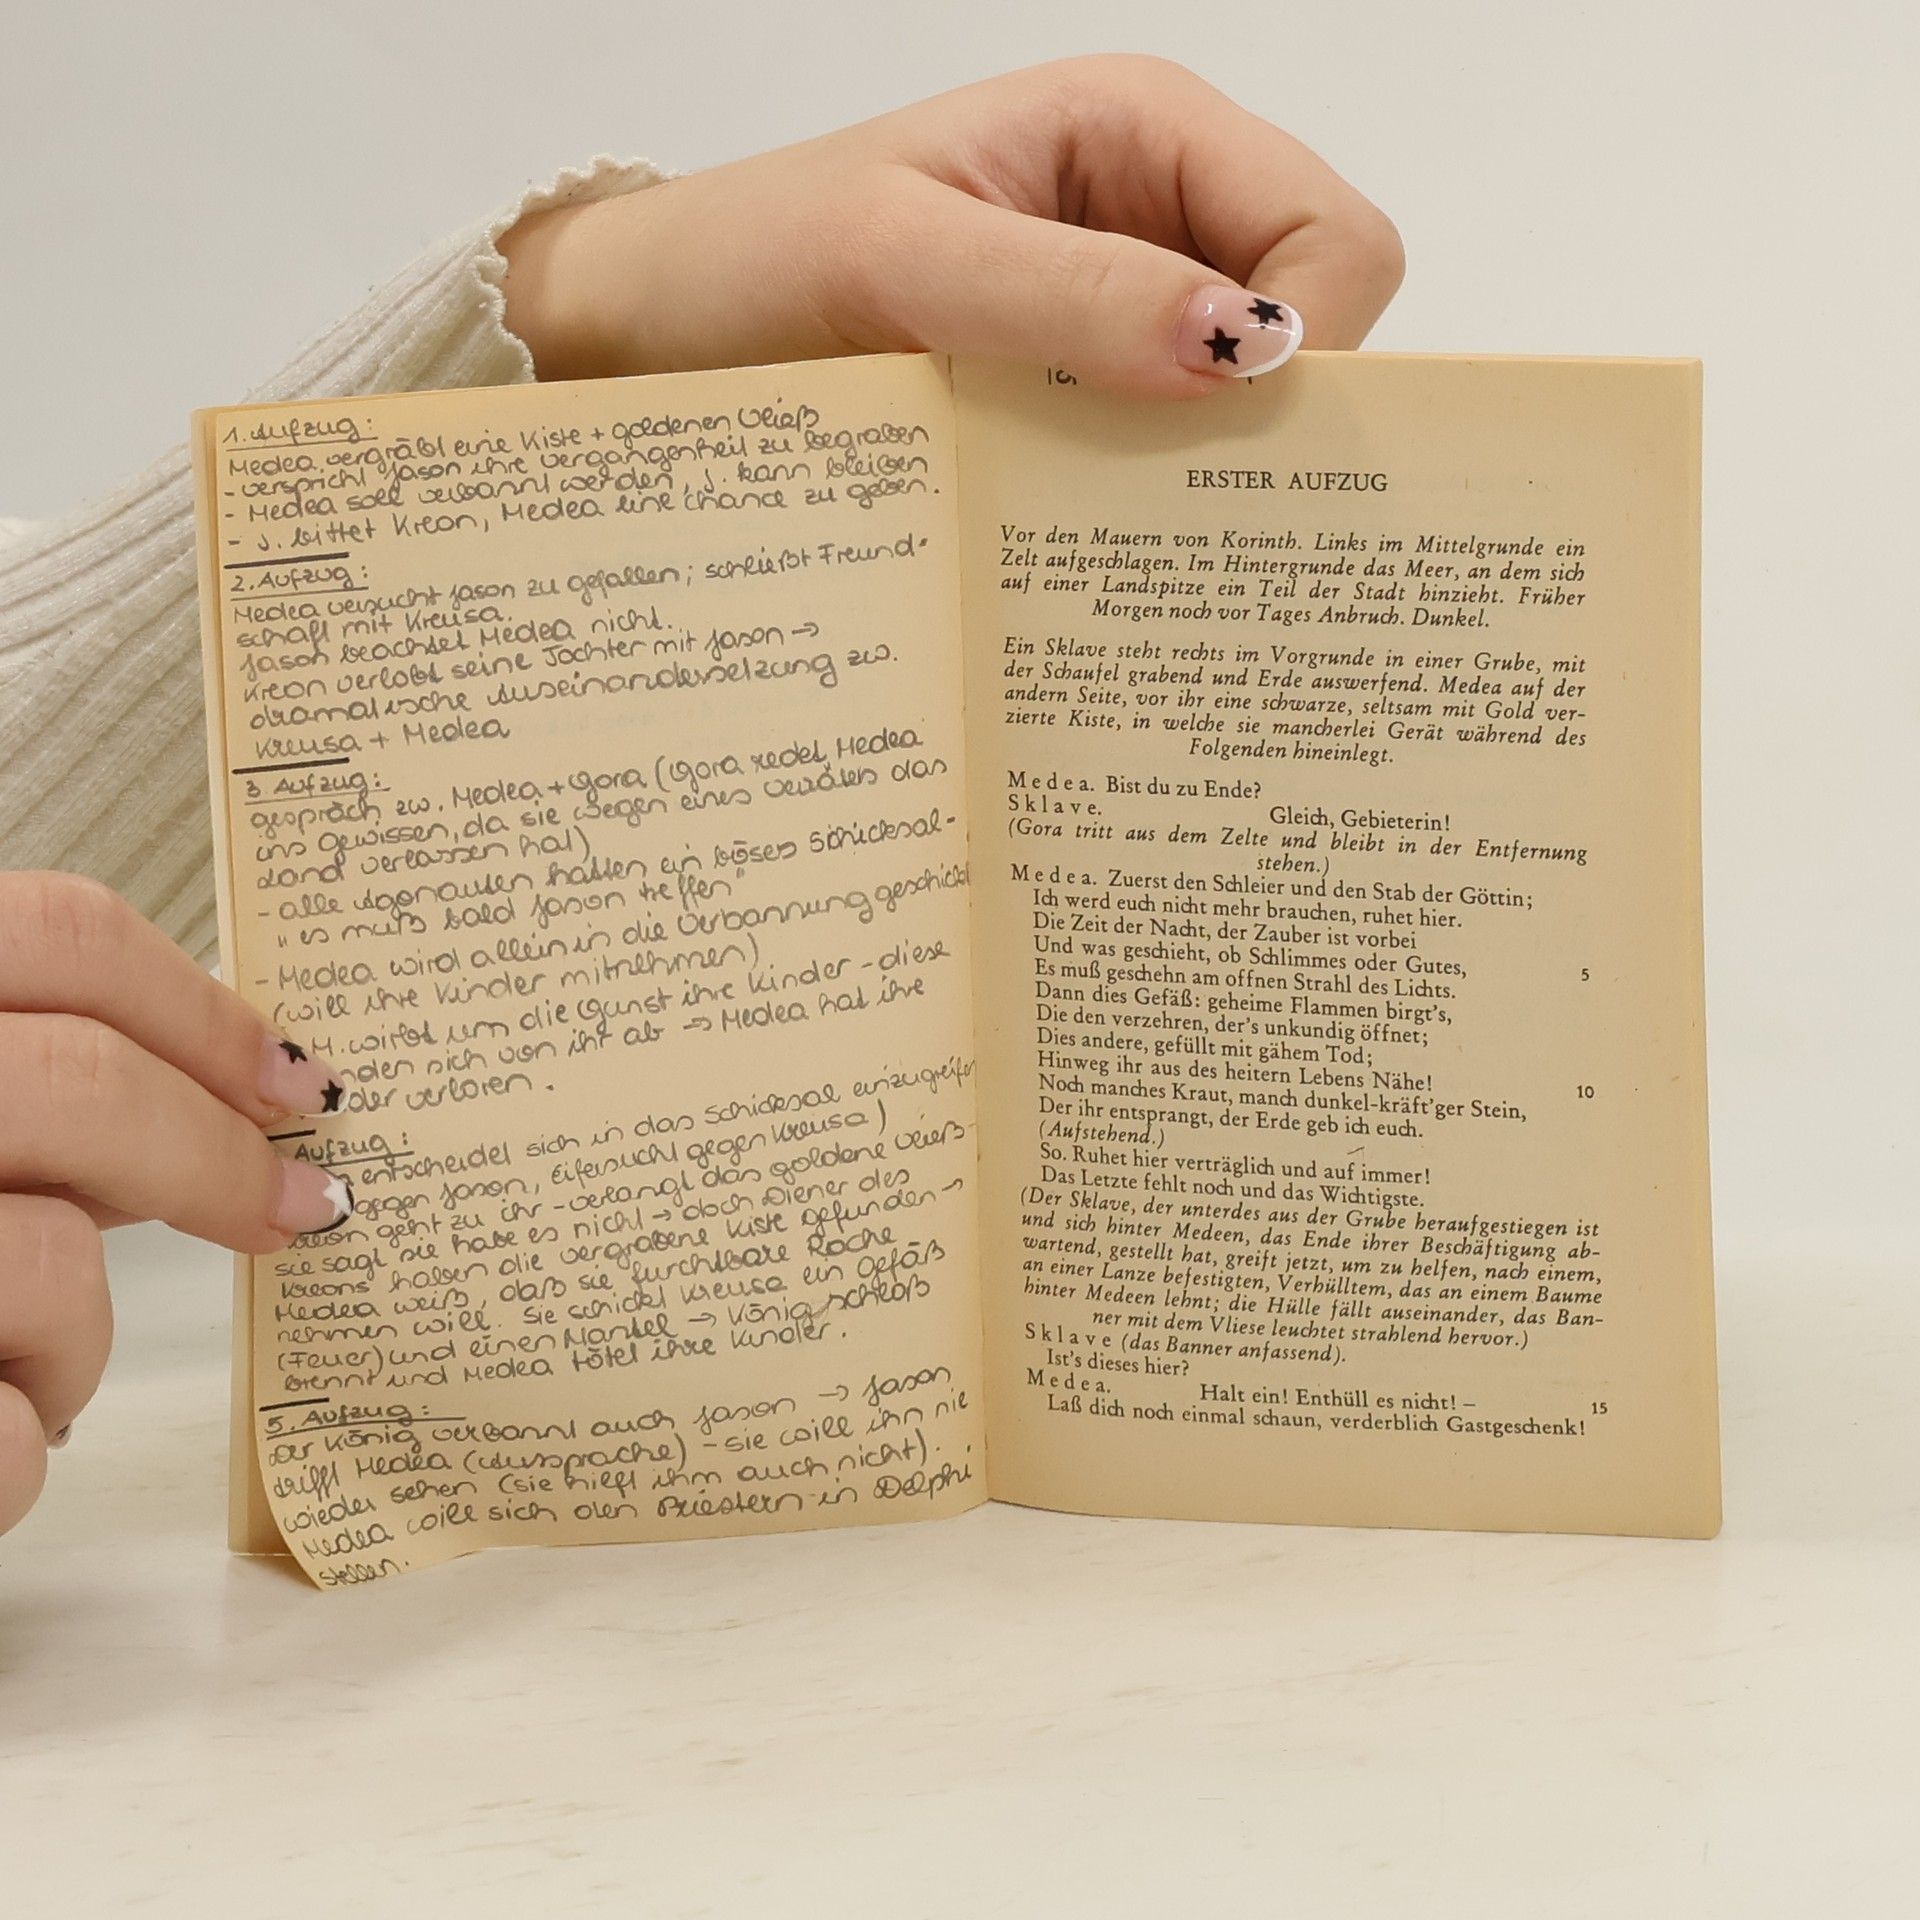 1. Aufzug:
Medea vergräbt eine Kiste + goldenen Vließ
- verspricht Jason ihre Vergangenheit zu begraben
- Medea soll verbannt werden, J. kann bleiben
- J. bittet Kreon, Medea eine Chance zu geben.
2. Aufzug:
Medea versucht Jason zu gefallen; schließt Freund-
schaft mit Kreusa.
Jason beachtet Medea nicht.
Kreon verlobt seine Tochter mit Jason →
dramatische Auseinandersetzung zw.
Kreusa + Medea
3. Aufzug:
Gespräch zw. Medea + Gora (Gora redet Medea
ins Gewissen, da sie wegen eines Verräters das
Land verlassen hat)
- alle Agonauten hatten ein böses Schicksal -
"es muß bald Jason treffen"
- Medea wird allein in die Verbannung geschickt
(will ihre Kinder mitnehmen)
M. wirbt um die Gunst ihre Kinder - diese
nden sich von ihr ab → Medea hat ihre
der verloren.
Aufzug:
entscheidet sich in das Schicksal einzugreifen
gegen Jason, Eifersucht gegen Kreusa)
Kreon geht zu ihr - verlangt das goldene Vließ -
sie sagt sie habe es nicht → doch Diener des
Kreons haben die vergrabene Kiste gefunden →
Medea weiß, daß sie furchtbare Rache
nehmen will. Sie schickt Kreusa ein Gefäß
(Feuer) und einen Mantel → Königschloß
brennt und Medea tötet ihre Kinder.
5. Aufzug:
Der König verbannt auch Jason → Jason
trifft Medea (Aussprache) - sie will ihn nie
wieder sehen (sie hilft ihm auch nicht).
Medea will sich den Priestern in Delphi
stellen.
ERSTER AUFZUG
Vor den Mauern von Korinth. Links im Mittelgrunde ein
Zelt aufgeschlagen. Im Hintergrunde das Meer, an dem sich
auf einer Landspitze ein Teil der Stadt hinzieht. Früher
Morgen noch vor Tages Anbruch. Dunkel.
Ein Sklave steht rechts im Vorgrunde in einer Grube, mit
der Schaufel grabend und Erde auswerfend. Medea auf der
andern Seite, vor ihr eine schwarze, seltsam mit Gold ver-
zierte Kiste, in welche sie mancherlei Gerät während des
Folgenden hineinlegt.
Medea. Bist du zu Ende?
Sklave. Gleich, Gebieterin!
(Gora tritt aus dem Zelte und bleibt in der Entfernung
stehen.)
Medea. Zuerst den Schleier und den Stab der Göttin;
Ich werd euch nicht mehr brauchen, ruhet hier.
Die Zeit der Nacht, der Zauber ist vorbei
Und was geschieht, ob Schlimmes oder Gutes, 5
Es muß geschehn am offnen Strahl des Lichts.
Dann dies Gefäß: geheime Flammen birgt's,
Die den verzehren, der's unkundig öffnet;
Dies andere, gefüllt mit gähem Tod;
Hinweg ihr aus des heitern Lebens Nähe!
Noch manches Kraut, manch dunkel-kräft'ger Stein, 10
Der ihr entsprangt, der Erde geb ich euch.
(Aufstehend.)
So. Ruhet hier verträglich und auf immer!
Das Letzte fehlt noch und das Wichtigste.
(Der Sklave, der unterdes aus der Grube heraufgestiegen ist
und sich hinter Medeen, das Ende ihrer Beschäftigung ab-
wartend, gestellt hat, greift jetzt, um zu helfen, nach einem,
an einer Lanze befestigten, Verhülltem, das an einem Baume
hinter Medeen lehnt; die Hülle fällt auseinander, das Ban-
ner mit dem Vliese leuchtet strahlend hervor.)
Sklave (das Banner anfassend).
Ist's dieses hier?
Medea. Halt ein! Enthüll es nicht! –
Laß dich noch einmal schaun, verderblich Gastgeschenk! 15